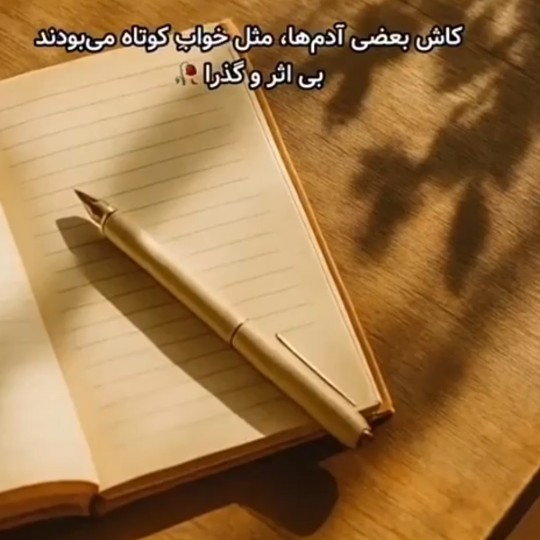 کاش بعضی آدم‌ها، مثل خوابِ کوتاه می‌بودند
بی اثر و گذرا 🥀